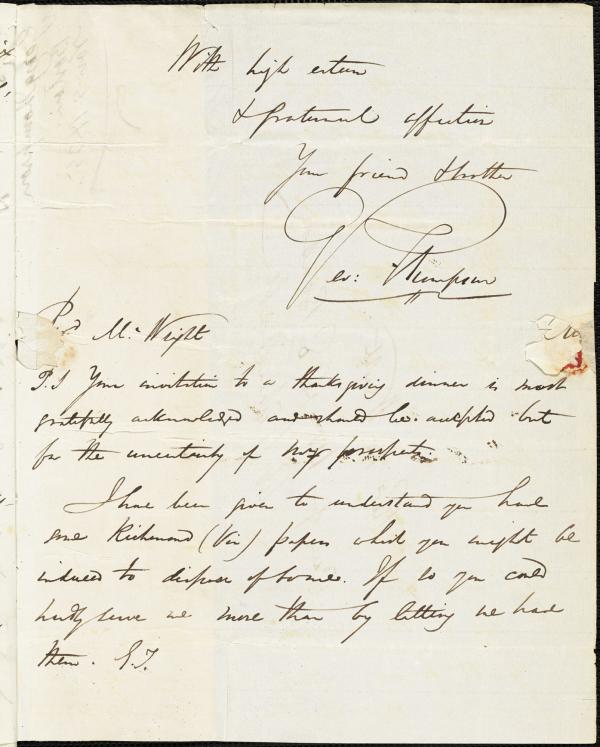 With high esteem
& fraternal affection
Your friend & brother
Geo: Thompson
Mr Wright
P.S Your invitation to a thanksgiving dinner is most
gratefully acknowledged and should be accepted but
for the uncertainty of my prospects.
I have been given to understand you have
some Richmond (Va) papers which you might be
induced to dispose of to me. If so you could
hardly serve me more than by letting me have
them. G.T.